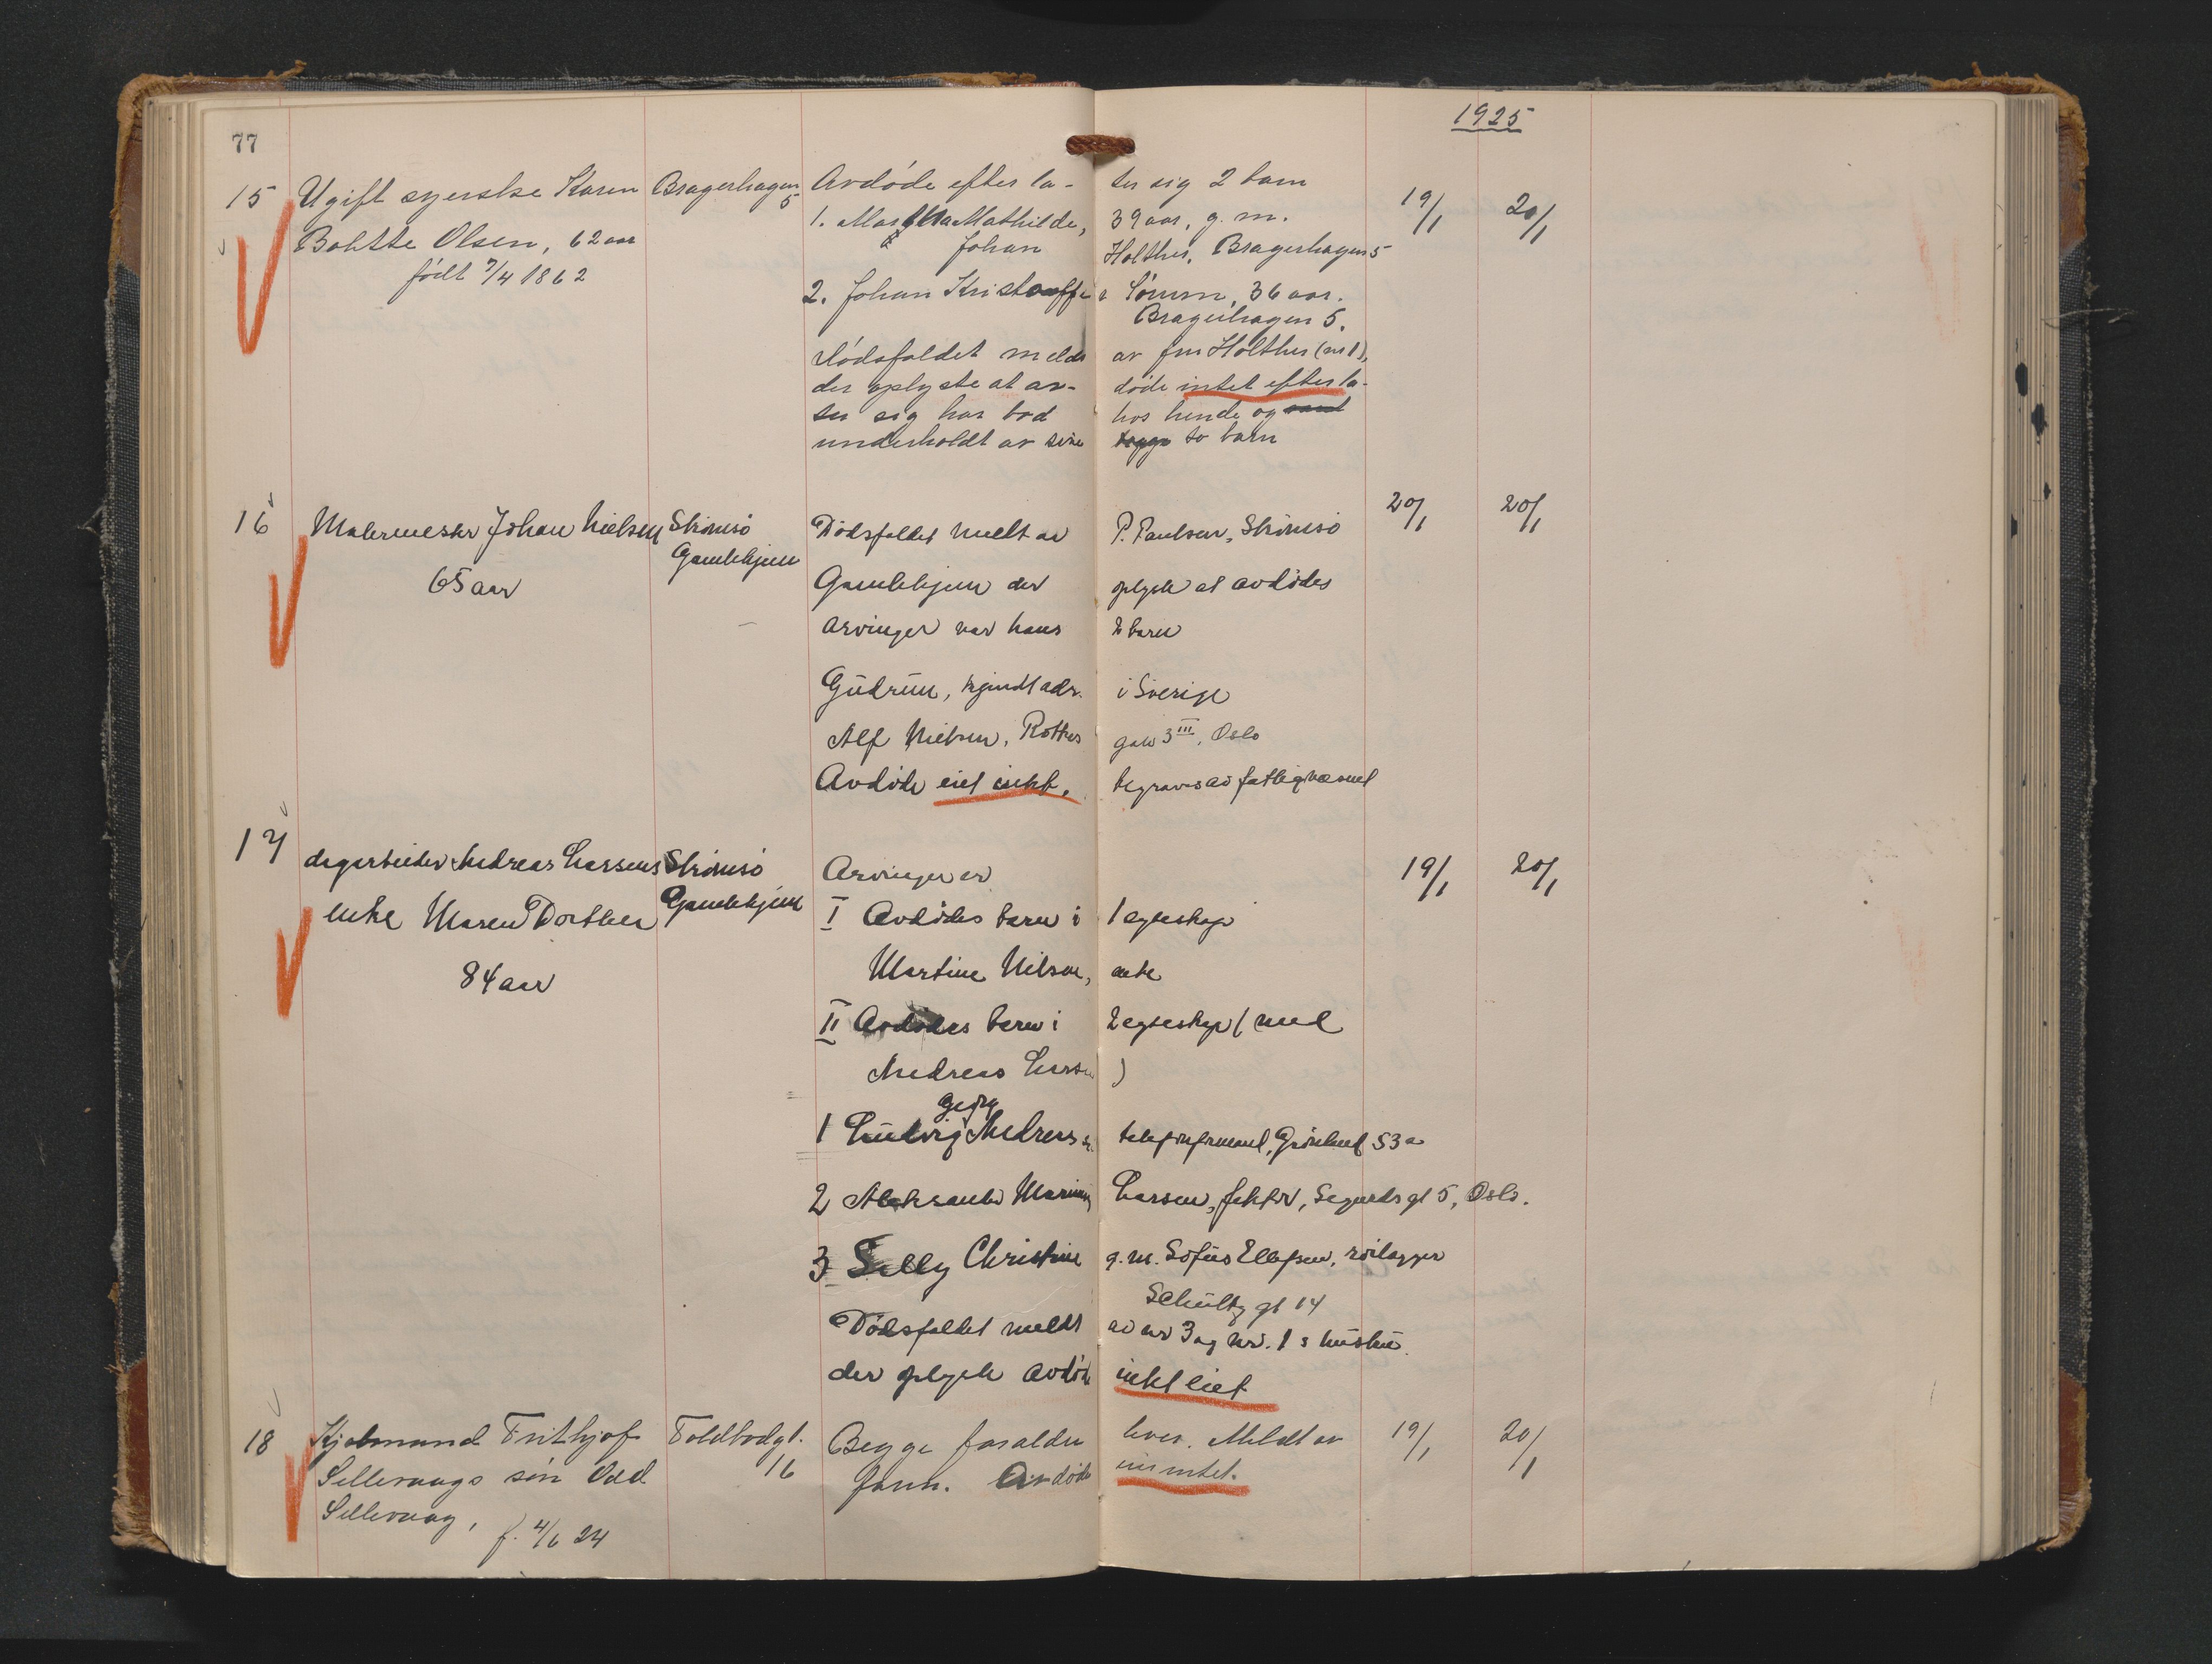 77
1925
15 Ugift syerske Karen Bragerhagen Avdøde efterla- ter sig 2 barn 19/1 20/1
5
Bolette Olsen, 62 aar 1. Martha Mathilde, 39 aar, g. m.
Johan Holther, Bragerhagen 5
født 7/4 1862
2. Johan Kristoffer Sørum, 36 aar.
Bragerhagen 5.
Dødsfaldet meldt av fru Holther (nr 1),
der oplyste at av- døde intet efterla-
ter sig har bod hos hende og
underholdt av sine to barn
16 Malermester Johan Nielsen Strømsø Dødsfaldet meldt av P. Paulsen, Strømsø 20/1 20/1
Gamlehjem
65 aar Gamlehjem der oplyste at avdødes
arvinger var hans 2 barn
Gudrun, ukjendt adr. i Sverige
Alf Nielsen, gate 3 III, Oslo
Avdøde eiet intet, begraves av fattigvæsenet
17 dagarbeider Andreas Larsens Strømsø Arvinger er 19/1 20/1
enke Maren Dorthea Gamlehjem I Avdødes barn i 1 egteskap
84 aar Martine Nilsen, enke
II Avdødes barn i 2 egteskap (med
Andreas Larsen )
Georg
1 Ludvig Andreassen telefonformand, Grønland 53a
2 Aleksander Marinius Larsen, faktor, Sigurdsgt 5, Oslo.
3 Selly Christine g. m. Sofus Ellefsen, rørlægger
Schultzgt 14
Dødsfaldet meldt av nr 3 og nr. 1 s hustru.
der oplyste avdøde intet eiet
18 Kjøbmand Frithjof Toldbodgt. Begge foraldre lever. Meldt av 19/1 20/1
16
Sellevaags søn Odd faren. Avdøde eier intet.
Sellevaag, f. 4/6 24